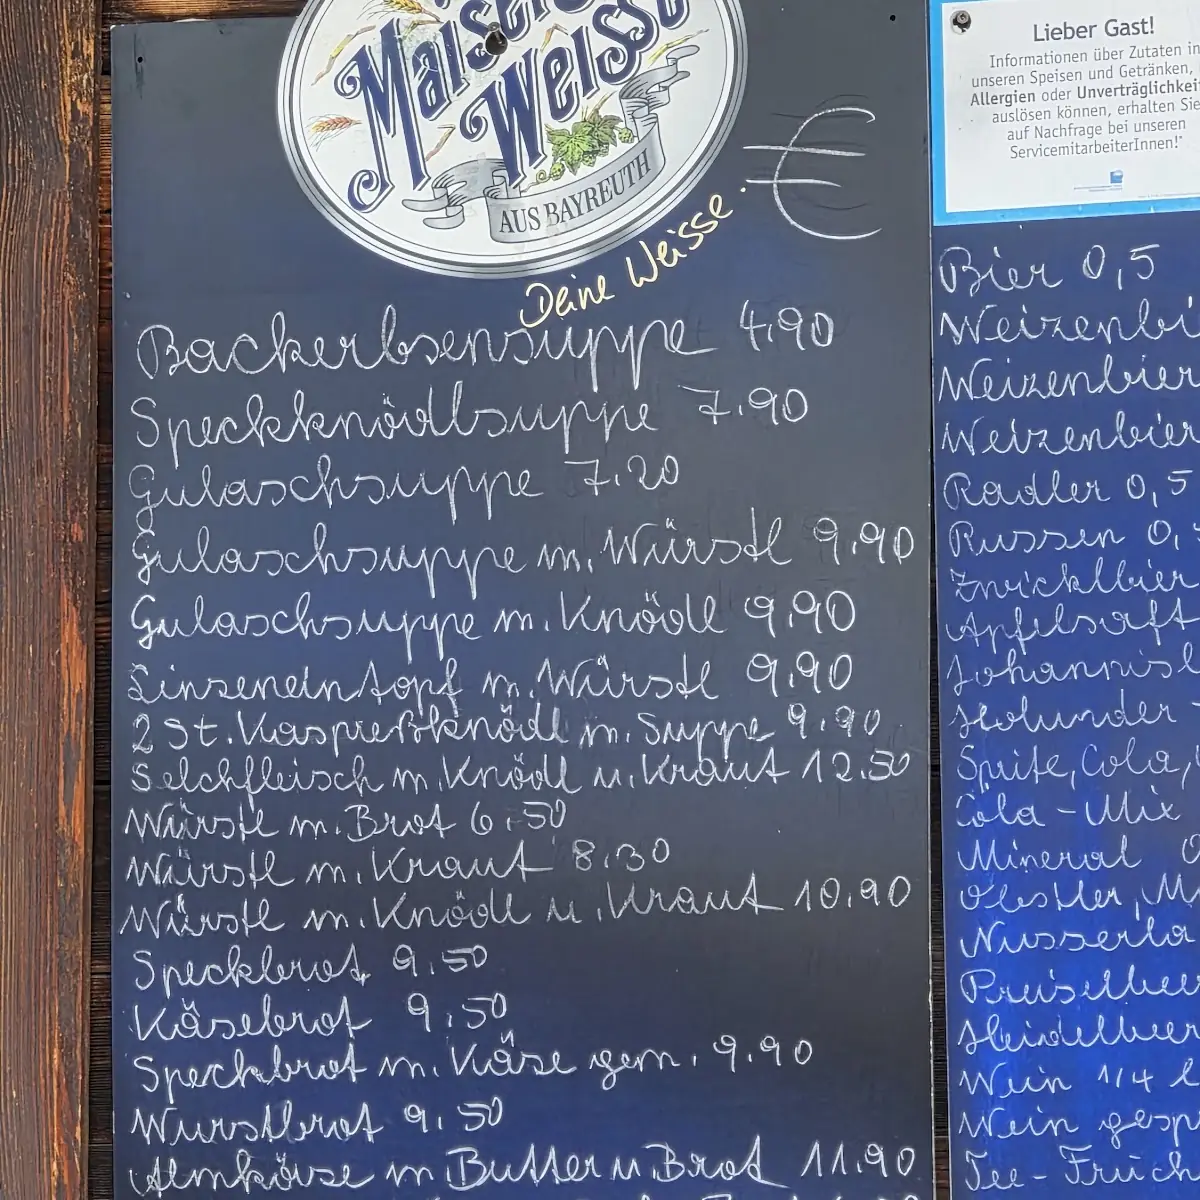 Maisels
Weisse
AUS BAYREUTH
Deine Weisse.
€
Backerbsensuppe 4.90
Speckknödlsuppe 7.90
Gulaschsuppe 7.20
Gulaschsuppe m. Würstl 9.90
Gulaschsuppe m. Knödl 9.90
Linseneintopf m. Würstl 9.90
2 St. Kaspreßknödl m. Suppe 9.90
Selchfleisch m. Knödl u. Kraut 12.50
Würstl m. Brot 6.50
Würstl m. Kraut 8.30
Würstl m. Knödl u. Kraut 10.90
Speckbrot 9.50
Käsebrot 9.50
Speckbrot m. Käse gem. 9.90
Wurstbrot 9.50
Almkäse m Butter u. Brot 11.90
Lieber Gast!
Informationen über Zutaten in
unseren Speisen und Getränken,
Allergien oder Unverträglichkei
auslösen können, erhalten Sie
auf Nachfrage bei unseren
ServicemitarbeiterInnen!"
Bier 0,5
Weizenbi
Weizenbier
Weizenbier
Radler 0,5
Russen 0,
Zwicklbier
Apfelsaft
Johannisb
Holunder -
Sprite, Cola,
Cola - Mix
Mineral
Obstler, M
Nusserla
Preiselbeer
Heidelbeer
Wein 1/4 l
Wein gesp
Tee - Früch